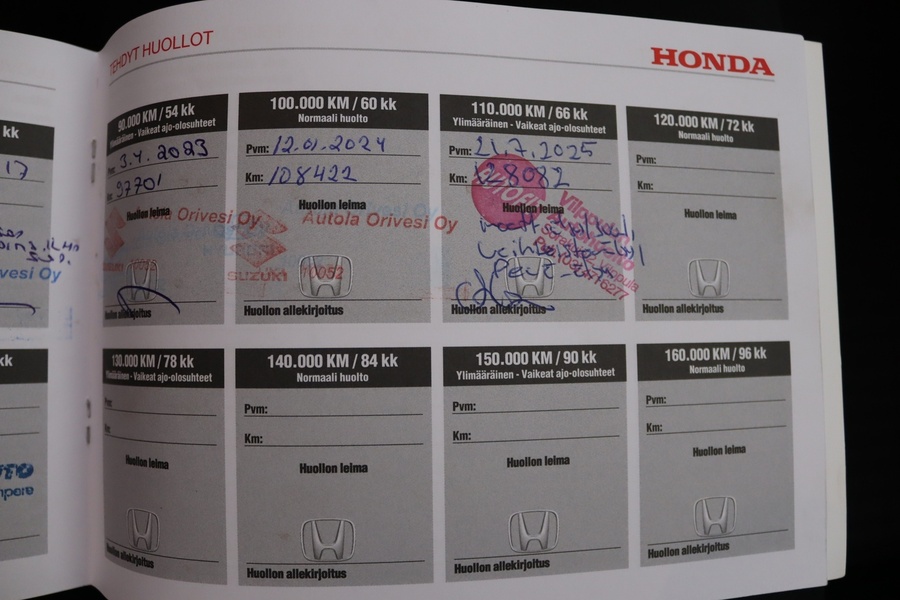 TEHDYT HUOLLOT
HONDA
kk
17
vesi Oy
90.000 KM / 54 kk
Ylimääräinen - Vaikeat ajo-olosuhteet
3.4.2023
97701
Huollon leima
Autola Orivesi Oy
Huollon allekirjoitus
100.000 KM / 60 kk
Normaali huolto
Pvm: 12.01.2024
Km: 108422
Huollon leima
Autola Orivesi Oy
SUZUKI 10052
Huollon allekirjoitus
110.000 KM / 66 kk
Ylimääräinen - Vaikeat ajo-olosuhteet
Pvm: 21.7.2025
Km: 128082
Huollon leima
Huollon allekirjoitus
120.000 KM / 72 kk
Normaali huolto
Pvm:
Km:
Huollon leima
Huollon allekirjoitus
kk
130.000 KM / 78 kk
Ylimääräinen - Vaikeat ajo-olosuhteet
Pvm:
Km:
Huollon leima
Huollon allekirjoitus
140.000 KM / 84 kk
Normaali huolto
Pvm:
Km:
Huollon leima
Huollon allekirjoitus
150.000 KM / 90 kk
Ylimääräinen - Vaikeat ajo-olosuhteet
Pvm:
Km:
Huollon leima
Huollon allekirjoitus
160.000 KM / 96 kk
Normaali huolto
Pvm:
Km:
Huollon leima
Huollon allekirjoitus